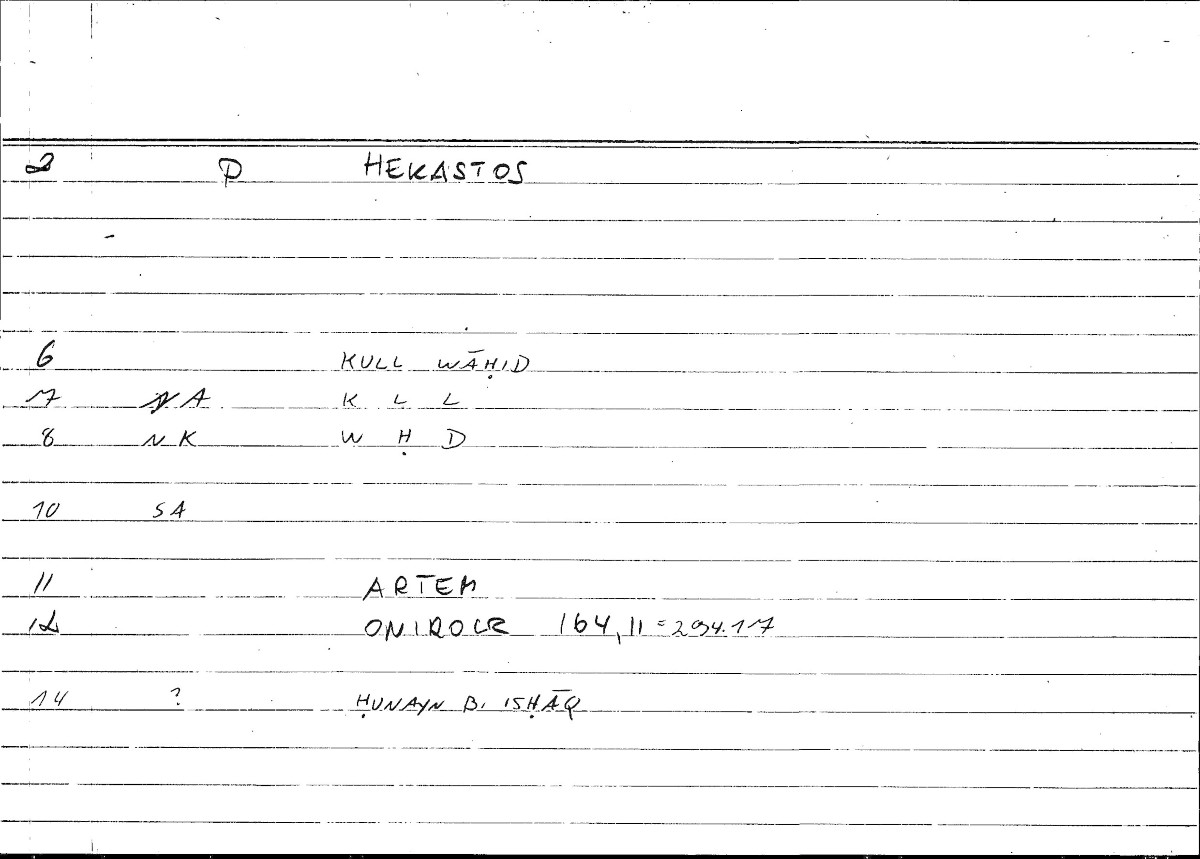 2 P HEKASTOS
6 KULL WĀḤID
7 NA K L L
8 NK W Ḥ D
10 SA
11 ARTEM
12 ONIROCR 164,11 = 294.17
14 ? ḤUNAYN B. ISḤĀQ